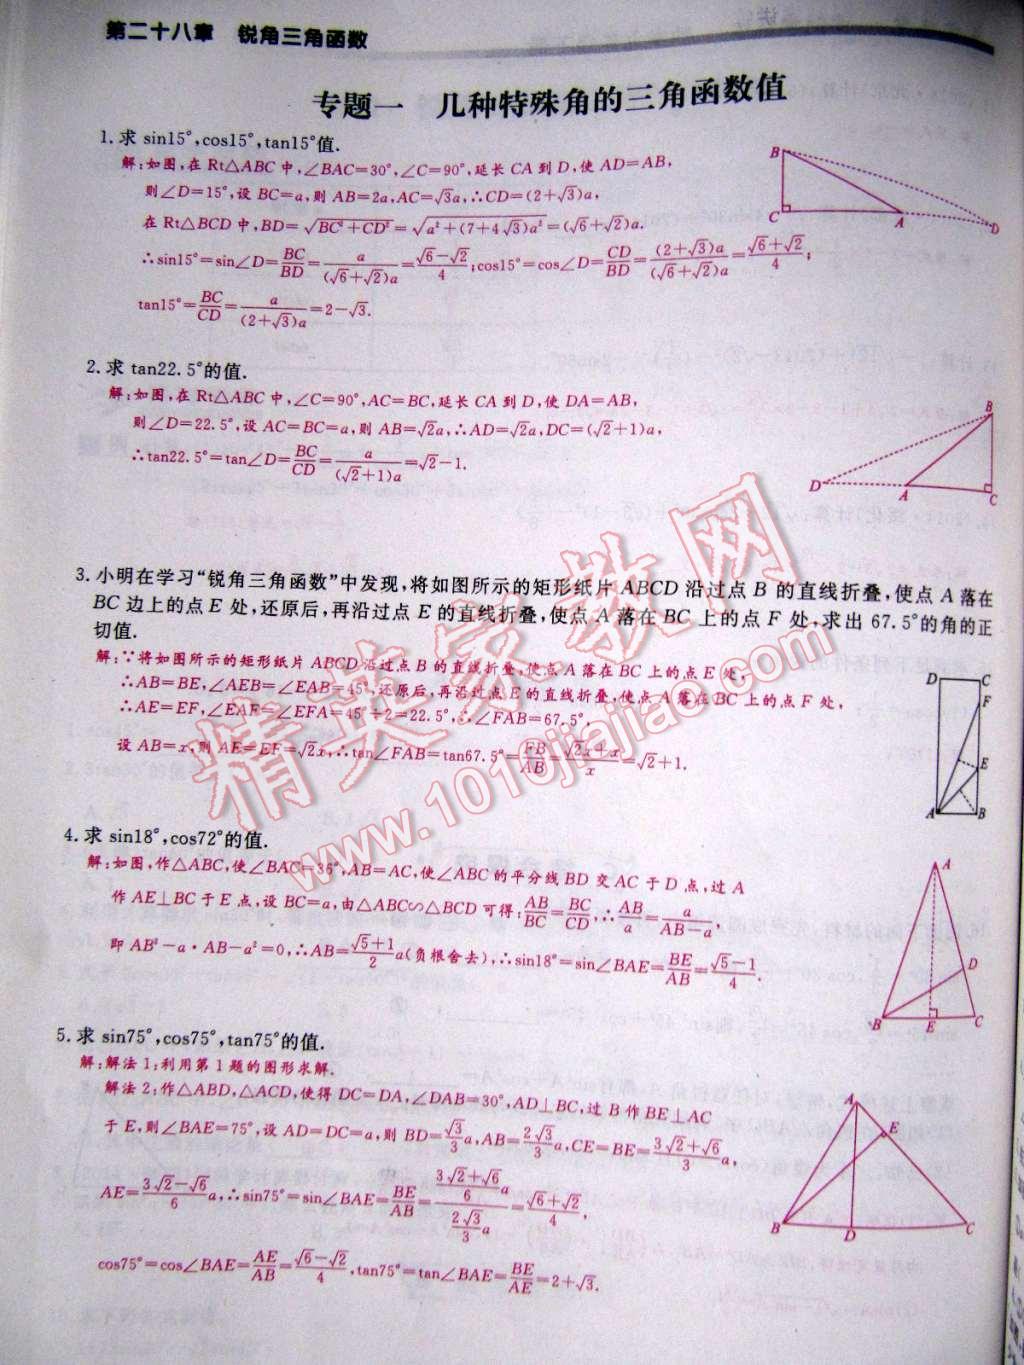 第二十八章 锐角三角函数
专题一 几种特殊角的三角函数值
1. 求 sin15°,cos15°,tan15°值.
解:如图,在 Rt△ABC 中,∠BAC=30°,∠C=90°,延长 CA 到 D,使 AD=AB,
则∠D=15°,设 BC=a,则 AB=2a,AC=√3a,∴CD=(2+√3)a,
在 Rt△BCD 中,BD=√(BC²+CD²)=√(a²+(7+4√3)a²)=(√6+√2)a.
∴sin15°=sin∠D=BC/BD=a/((√6+√2)a)=(√6-√2)/4;cos15°=cos∠D=CD/BD=(2+√3)a/((√6+√2)a)=(√6+√2)/4;
tan15°=BC/CD=a/((2+√3)a)=2-√3.
B
C
A
D
2. 求 tan22.5°的值.
解:如图,在 Rt△ABC 中,∠C=90°,AC=BC,延长 CA 到 D,使 DA=AB,
则∠D=22.5°,设 AC=BC=a,则 AB=√2a,∴AD=√2a,DC=(√2+1)a,
∴tan22.5°=tan∠D=BC/CD=a/((√2+1)a)=√2-1.
B
D
A
C
3. 小明在学习“锐角三角函数”中发现,将如图所示的矩形纸片 ABCD 沿过点 B 的直线折叠,使点 A 落在
BC 边上的点 E 处,还原后,再沿过点 E 的直线折叠,使点 A 落在 BC 上的点 F 处,求出 67.5°的角的正
切值.
解:∵将如图所示的矩形纸片 ABCD 沿过点 B 的直线折叠,使点 A 落在 BC 上的点 E 处,
∴AB=BE,∠AEB=∠EAB=45°,还原后,再沿过点 E 的直线折叠,使点 A 落在 BC 上的点 F 处,
∴AE=EF,∠EAF=∠EFA=45°÷2=22.5°,∴∠FAB=67.5°.
设 AB=x,则 AE=EF=√2x,∴tan∠FAB=tan67.5°=FB/AB=(√2x+x)/x=√2+1.
D
C
F
E
A
B
4. 求 sin18°,cos72°的值.
解:如图,作△ABC,使∠BAC=36°,AB=AC,使∠ABC 的平分线 BD 交 AC 于 D 点,过 A
作 AE⊥BC 于 E 点,设 BC=a,由△ABC∽△BCD 可得:AB/BC=BC/CD,∴AB/a=a/(AB-a),
即 AB²-a·AB-a²=0,∴AB=(√5+1)/2 a(负根舍去),∴sin18°=sin∠BAE=BE/AB=(√5-1)/4.
A
D
B
E
C
5. 求 sin75°,cos75°,tan75°的值.
解:解法 1:利用第 1 题的图形求解.
解法 2:作△ABD,△ACD,使得 DC=DA,∠DAB=30°,AD⊥BC,过 B 作 BE⊥AC
于 E,则∠BAE=75°,设 AD=DC=a,则 BD=√3/3 a,AB=2√3/3 a,CE=BE=(3√2+√6)/6 a,
AE=(3√2-√6)/6 a,∴sin75°=sin∠BAE=BE/AB=((3√2+√6)/6 a)/(2√3/3 a)=(√6+√2)/4,
cos75°=cos∠BAE=AE/AB=(√6-√2)/4,tan75°=tan∠BAE=BE/AE=2+√3.
A
E
B
D
C
精英家教网
www.1010jiajiao.com